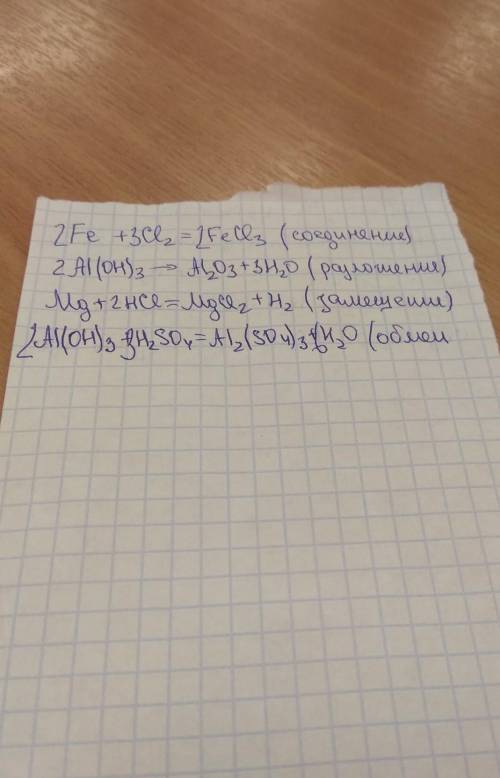 2Fe + 3Cl₂ = 2FeCl₃ (соединение)
2Al(OH)₃ → Al₂O₃ + 3H₂O (разложение)
Mg + 2HCl = MgCl₂ + H₂ (замещении)
2Al(OH)₃ + 3H₂SO₄ = Al₂(SO₄)₃ + 6H₂O (обмен